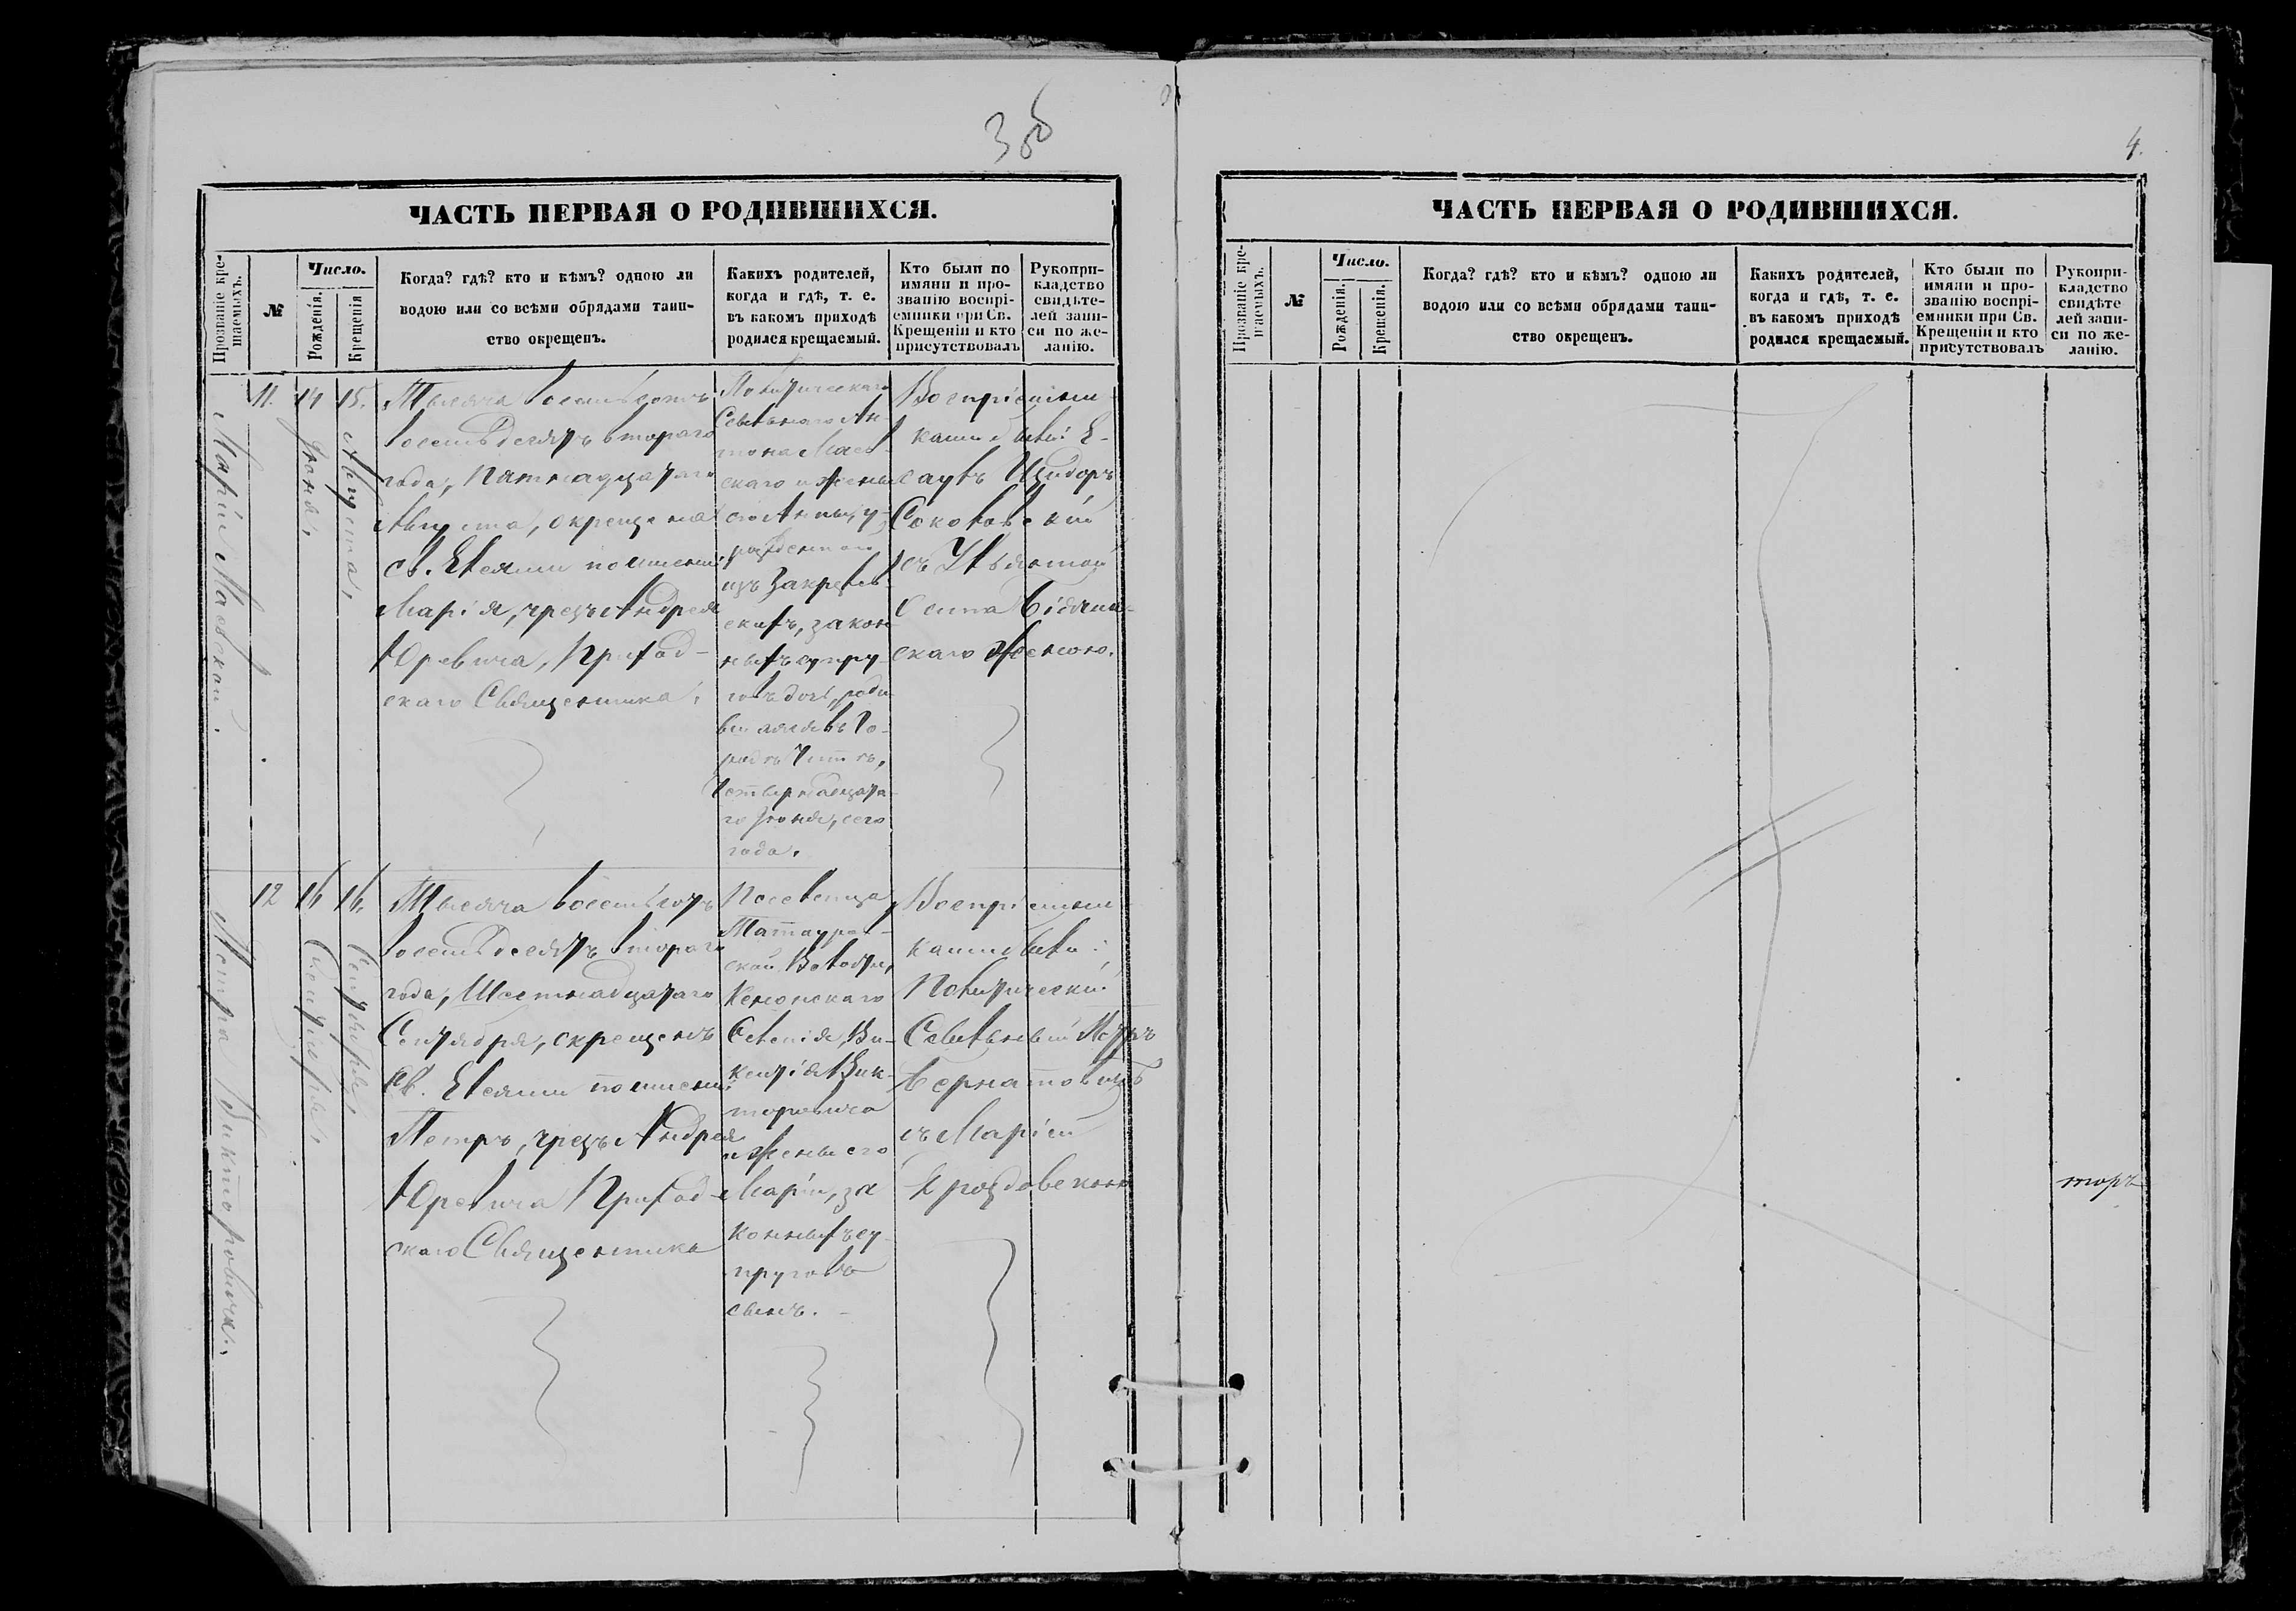 3 об
ЧАСТЬ ПЕРВАЯ О РОДИВШИХСЯ.
Прозваніе кре-
щаемыхъ.
№
Число.
Рожденія.
Крещенія
Когда? гдѣ? кто и кѣмъ? одною ли
водою или со всѣми обрядами таин-
ство окрещенъ.
Какихъ родителей,
когда и гдѣ, т. е.
въ какомъ приходѣ
родился крещаемый.
Кто были по
имяни и про-
званію воспрі-
емники при Св.
Крещеніи и кто
присутствовалъ
Рукопри-
кладство
свидѣте-
лей запи-
си по же-
ланію.
Маріи Маевской.
11.
14
Іюня.
15.
Августа,
Тысяча восемьсотъ
восемьдесятъ втораго
года, Пятнадцатаго
Августа, окрещена
св. Елеями по имени:
Марія, чрезъ Андрея
Юревича, Приход-
скаго Священника.
Политическаго
Сыльнаго Ан-
тона Маев-
скаго и жены
его Анны, у-
рожденной
изъ Закревс-
кихъ, закон-
ныхъ супру-
говъ дочь, роди-
вшаяся въ Го-
родѣ Читѣ,
Четырнадцата-
го Іюня, сего
года.
Воспріемни-
ками были: Е-
саулъ Изидоръ
Соколовскій
съ Ульяной
Осипа
скаго женою.
12
Петра Викторовича.
16
Сентября,
16.
Сентября,
Тысяча восемьсотъ
восемьдесятъ втораго
года, Шестнадцатаго
Сентября, окрещенъ
Св. Елеями по имени:
Петръ, чрезъ Андрея
Юревича Приход-
скаго Священника
Поселенца
Татауров-
ской Волости,
Кенонскаго
Селенія, Ви-
кентія Вик-
торовича
и жены его
Маріи, за
конныхъ су-
пруговъ
сынъ.
Воспріемни
ками были:
Политическій
Сыльный Петръ
Бернатовичъ
съ Маріей
Дроздовскою
4.
ЧАСТЬ ПЕРВАЯ О РОДИВШИХСЯ.
Прозваніе кре-
щаемыхъ.
№
Число.
Рожденія.
Крещенія.
Когда? гдѣ? кто и кѣмъ? одною ли
водою или со всѣми обрядами таин-
ство окрещенъ.
Какихъ родителей,
когда и гдѣ, т. е.
въ какомъ приходѣ
родился крещаемый.
Кто были по
имяни и про-
званію воспрі-
емники при Св.
Крещеніи и кто
присутствовалъ
Рукопри-
кладство
свидѣте
лей запи-
си по же-
ланію.
торъ